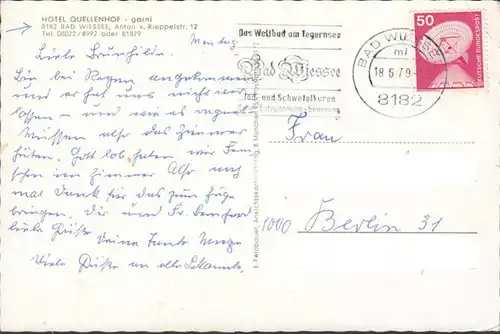 HOTEL QUELLENHOF - garni
8182 BAD WIESSEE, Anton v. Rieppelstr. 12
Tel. 08022/8992 oder 81829
Montag
Liebe Brunhilde.
Bin bei Regen angekommen
und er hat uns nicht ver-
lassen - und wie es regnet
Müssen also das Zimmer
hüten. Gott lob haben wir Fern-
sehen im Zimmer Also noch
mal Dank für das zum Zuge
bringen. Dir und Fr.
liebe Grüße Deine Tante
Viele Grüße an alle Bekannte.
Das Weltbad am Tegernsee
Bad Wiessee
Jod- und Schwefelkuren
BAD WIESSEE
18.6.79
8182
50
DEUTSCHE BUNDESPOST
Frau
1000 Berlin 31